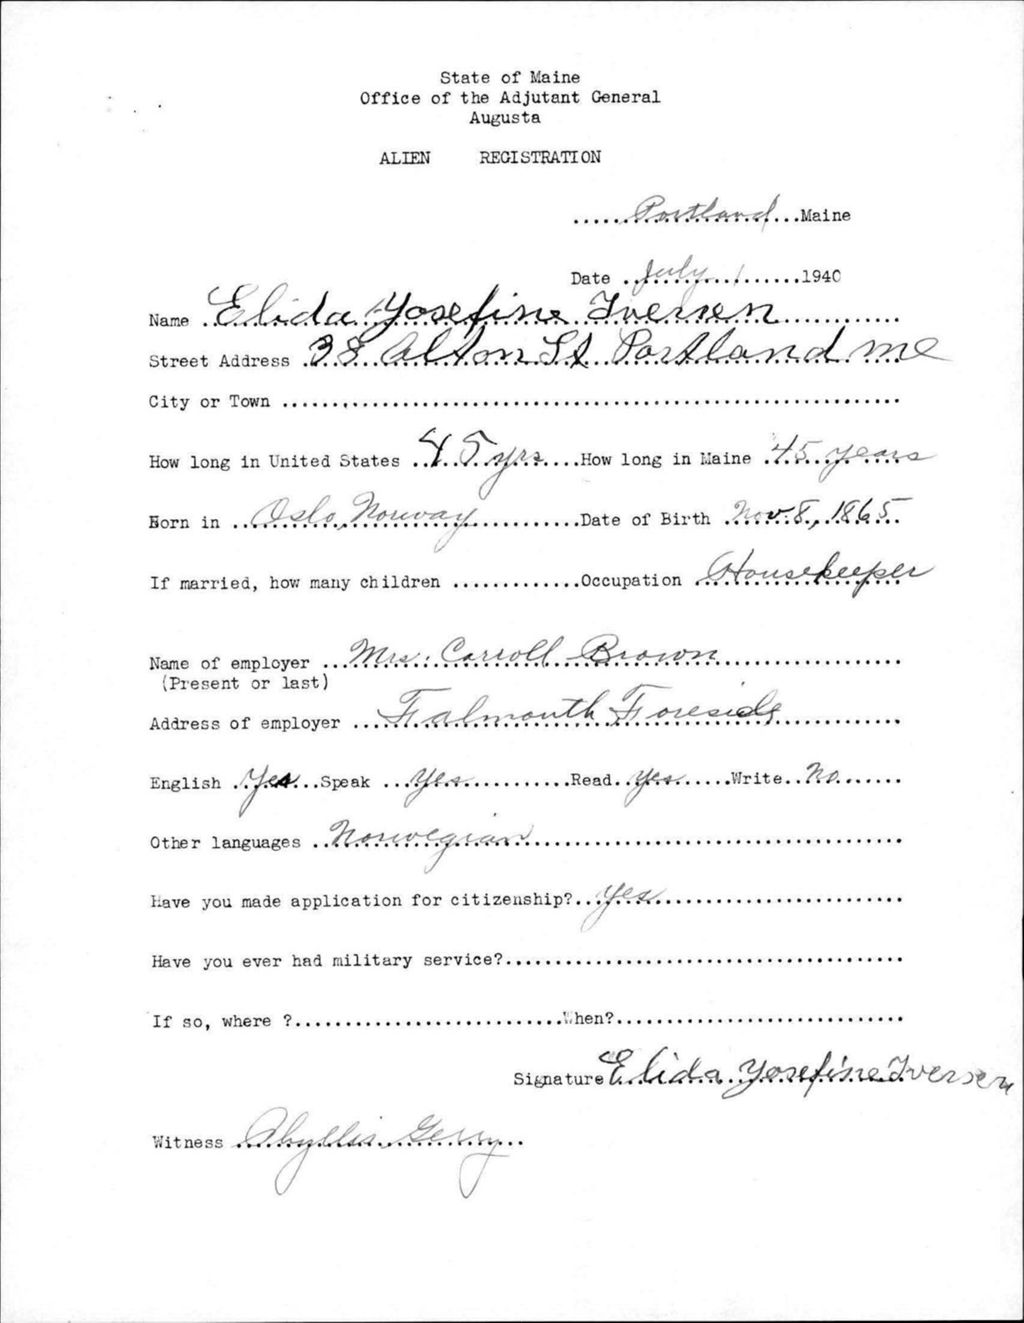 State of Maine
Office of the Adjutant General
Augusta
ALIEN REGISTRATION
......Portland...Maine
Date ..July 1......1940
Name ..Elida Yosefine Iversen............
Street Address ..38 Alton St Portland me
City or Town ..............................................................
How long in United States ..45 yrs....How long in Maine ..45 years
Born in ..Oslo, Norway............Date of Birth .Nov. 8, 1865..
If married, how many children .............Occupation ..Housekeeper
Name of employer ...Mrs. Carroll Brown..................
(Present or last)
Address of employer ....Falmouth Foreside............
English ..Yes...Speak ...Yes............Read..Yes......Write..No.......
Other languages ..Norwegian.....................................
Have you made application for citizenship?...Yes.........................
Have you ever had military service?.......................................
If so, where ?..........................When?............................
Signature Elida Yosefine Iversen
Witness Phyllis Gerry...